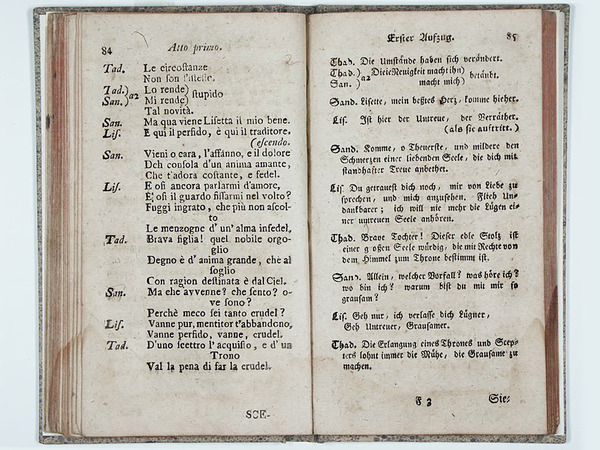 84 Atto primo.
Tad. Le circostanze
Non son l'istesse.
Tad.) a2 Lo rende) stupido
San.) Mi rende)
Tal novità.
San. Ma qua viene Lisetta il mio bene.
Lis. E qui il perfido, è qui il traditore.
(escendo.
San. Vieni o cara, l'affanno, e il dolore
Deh consola d'un anima amante,
Che t'adora costante, e fedel.
Lis. E osi ancora parlarmi d'amore,
E osi il guardo fissarmi nel volto?
Fuggi ingrato, che più non ascol-
to
Le menzogne d' un' alma infedel,
Tad. Brava figlia! quel nobile orgo-
glio
Degno è d' anima grande, che al
soglio
Con ragion destinata è dal Ciel.
San. Ma che avvenne? che sento? o-
ve sono?
Perchè meco sei tanto crudel?
Lis. Vanne pur, mentitor t'abbandono,
Vanne perfido, vanne, crudel.
Tad. D'uno scettro l' acquisto, e d' un
Trono
Val la pena di far la crudel.
SCE-
Erster Aufzug. 85
Thad. Die Umstände haben sich verändert.
Thad.) a2 Die Neuigkeit macht ihn) betäubt.
San.) macht mich)
Sand. Lisette, mein bestes Herz, komme hieher.
Lis. Ist hier der Untreue, der Verräther.
(als sie auftritt.)
Sand. Komme, o Theuerste, und mildere den
Schmerzen einer liebenden Seele, die dich mit
standhafter Treue anbethet.
Lis. Du getrauest dich noch, mir von Liebe zu
sprechen, und mich anzusehen. Flieh Un-
dankbarer; ich will nie mehr die Lügen ei-
ner untreuen Seele anhören.
Thad. Brave Tochter! Dieser edle Stolz ist
einer großen Seele würdig, die mit Rechte von
dem Himmel zum Throne bestimmt ist.
Sand. Allein, welcher Vorfall? was höre ich?
wo bin ich? warum bist du mit mir so
grausam?
Lis. Geh nur, ich verlasse dich Lügner,
Geh Untreuer, Grausamer.
Thad. Die Erlangung eines Thrones und Scep-
ters lohnt immer die Mühe, die Grausame zu
machen.
F 3 Sie-